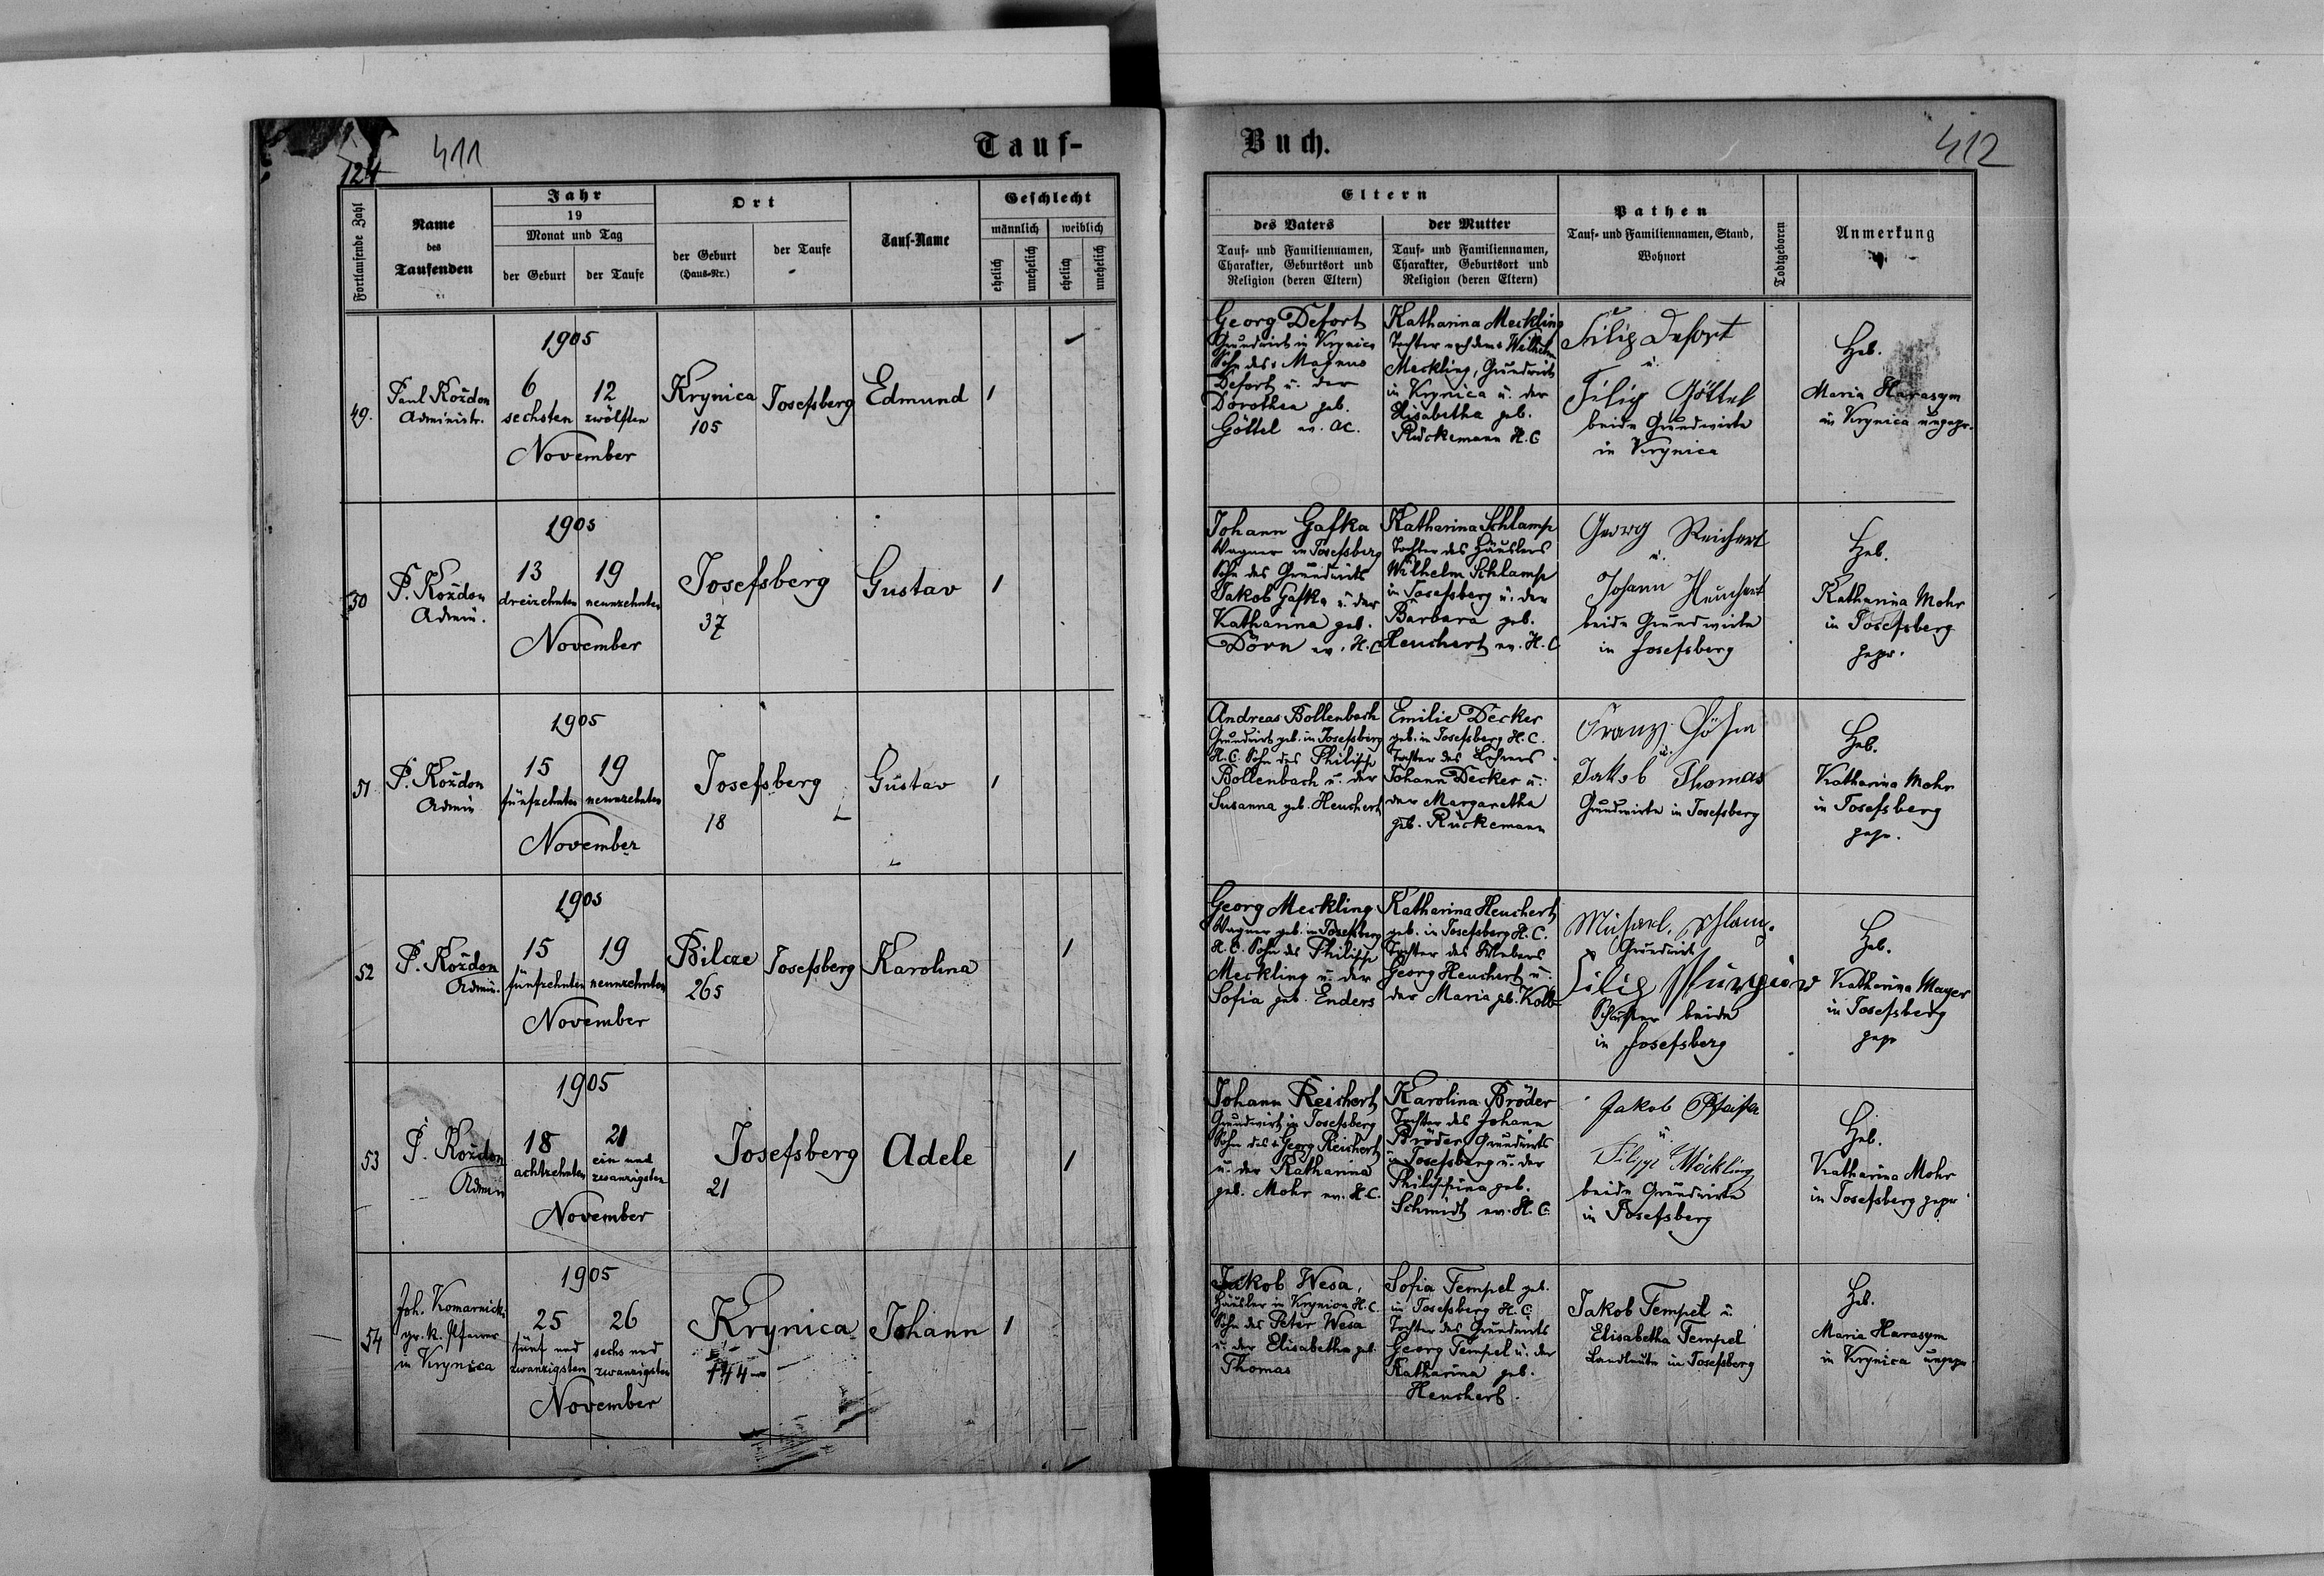 124
411
Tauf-
Fortlaufende Zahl
Name
des
Taufenden
Jahr
19
Monat und Tag
der Geburt
der Taufe
Ort
der Geburt
(Haus-Nr.)
der Taufe
Tauf-Name
Geschlecht
männlich
weiblich
ehelich
unehelich
ehelich
unehelich
49.
Paul Koždon
Administr.
1905
6
sechsten
12
zwölften
November
Krynica
105
Josefsberg
Edmund
1
50
P. Koždon
Admin.
1905
13
dreizehnten
19
neunzehnten
November
Josefsberg
37
Gustav
1
51
P. Koždon
Admin
1905
15
fünfzehnten
19
neunzehnten
November
Josefsberg
18
Gustav
1
52
P. Koždon
Admin.
1905
15
fünfzehnten
19
neunzehnten
November
Bilcze
265
Josefsberg
Karolina
1
53
P. Koždon
Admin
1905
18
achtzehnten
21
ein und
zwanzigsten
November
Josefsberg
21
Adele
1
54
Joh. Komarnicki
gr. k. Pfarrer
in Krynica
1905
25
fünf und
zwanzigsten
26
sechs und
zwanzigsten
November
Krynica
144
Johann
1
Buch.
412
Eltern
des Vaters
Tauf- und Familiennamen,
Charakter, Geburtsort und
Religion (deren Eltern)
der Mutter
Tauf- und Familiennamen,
Charakter, Geburtsort und
Religion (deren Eltern)
Pathen
Tauf- und Familiennamen, Stand,
Wohnort
Todtgeboren
Anmerkung
Georg Defort
Grundwirt in Krynica
Sohn des Magnus
Defort u. der
Dorothea geb.
Göttel ev. AC.
Katharina Meckling
Tochter nach dem Wilhelm
Meckling, Grundwirt
in Krynica u. der
Elisabetha geb.
Rückemann H.C
Filip Defort
u.
Filip Göttel
beide Grundwirte
in Krynica
Heb.
Maria Harasym
in Krynica ungepr.
Johann Gafka
Wagner in Josefsberg
Sohn des Grundwirts
Jakob Gafka u. der
Katharina geb.
Dörn ev. H.C
Katharina Schlamp
Tochter des Häuslers
Wilhelm Schlamp
in Josefsberg u. der
Barbara geb.
Heuchert ev. H.C
Georg Reichert
u.
Johann Heuchert
beide Grundwirte
in Josefsberg
Heb.
Katharina Mohr
in Josefsberg
gepr.
Andreas Bollenbach
Grundwirt geb. in Josefsberg
H.C. Sohn des Philipp
Bollenbach u. der
Susanna geb. Heuchert
Emilie Decker
geb. in Josefsberg H.C.
Tochter des Lehrers
Johann Decker u.
der Margaretha
geb. Rückemann
Franz
u.
Jakob Thomas
Grundwirte in Josefsberg
Heb.
Katharina Mohr
in Josefsberg
gepr.
Georg Meckling
Wagner geb. in Josefsberg
H.C. Sohn des Philipp
Meckling u. der
Sofia geb. Enders
Katharina Heuchert
geb. in Josefsberg H.C.
Tochter des Webers
Georg Heuchert u.
der Maria geb. Kolb
Michael Schlamp
Grundwirt
Filip
beide
in Josefsberg
Heb.
Katharina Mayer
in Josefsberg
gepr
Johann Reichert
Grundwirt in Josefsberg
Sohn des Georg Reichert
u. der Katharina
geb. Mohr ev. H.C.
Karolina Bröder
Tochter des Johann
Bröder Grundwirts
in Josefsberg u. der
Philippina geb.
Schmidt ev. H.C.
Jakob Pfeifer
u.
Filipp Möckling
beide Grundwirte
in Josefsberg
Heb.
Katharina Mohr
in Josefsberg gepr
Jakob Wesa,
Häusler in Krynica H.C.
Sohn des Peter Wesa
u. der Elisabetha geb.
Thomas
Sofia Tempel geb.
in Josefsberg H.C.
Tochter des Grundwirts
Georg Tempel u. der
Katharina geb.
Heuchert.
Jakob Tempel u
Elisabetha Tempel
Landleute in Josefsberg
Heb.
Maria Harasym
in Krynica ungepr